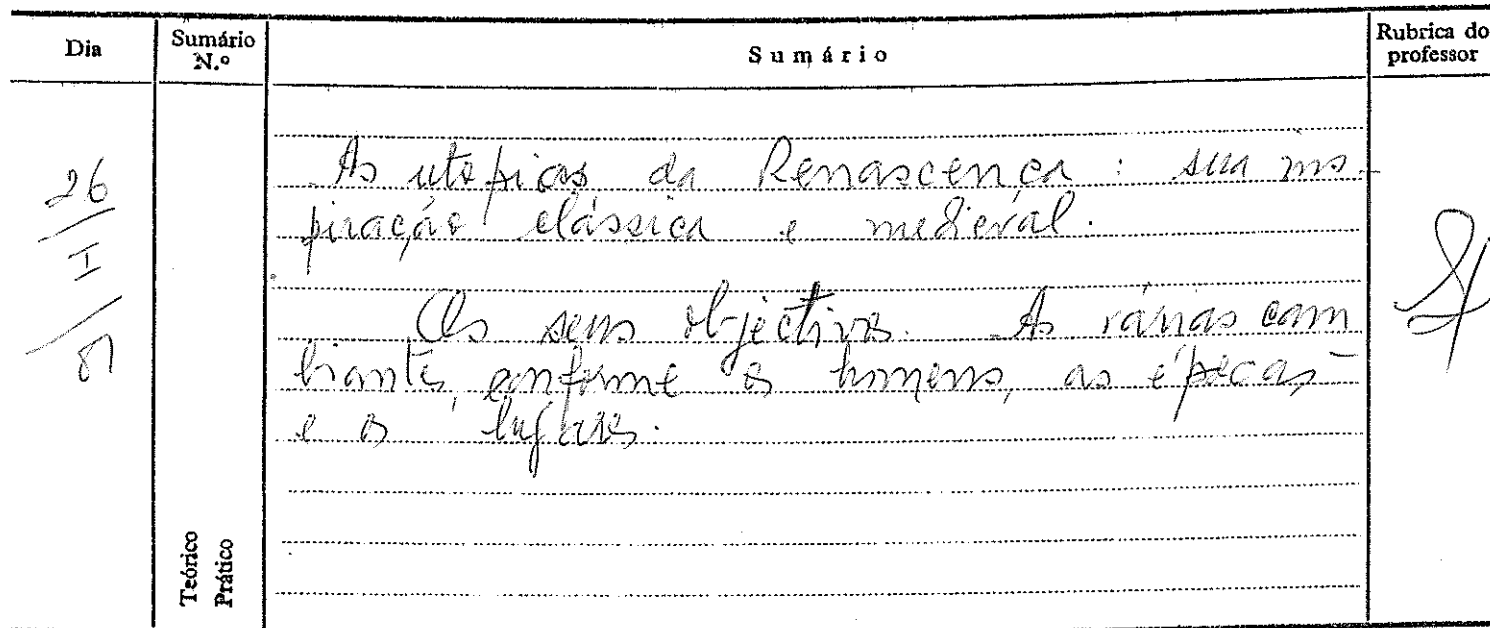 Dia
Sumário N.º
Sumário
Rubrica do professor
26
I
As utopias da Renascença : sua ins-
piração clássica e medieval.
Os seus objectivos. As várias cam
biantes, conforme os homens, as épocas
e os lugares.
Teórico
Prático